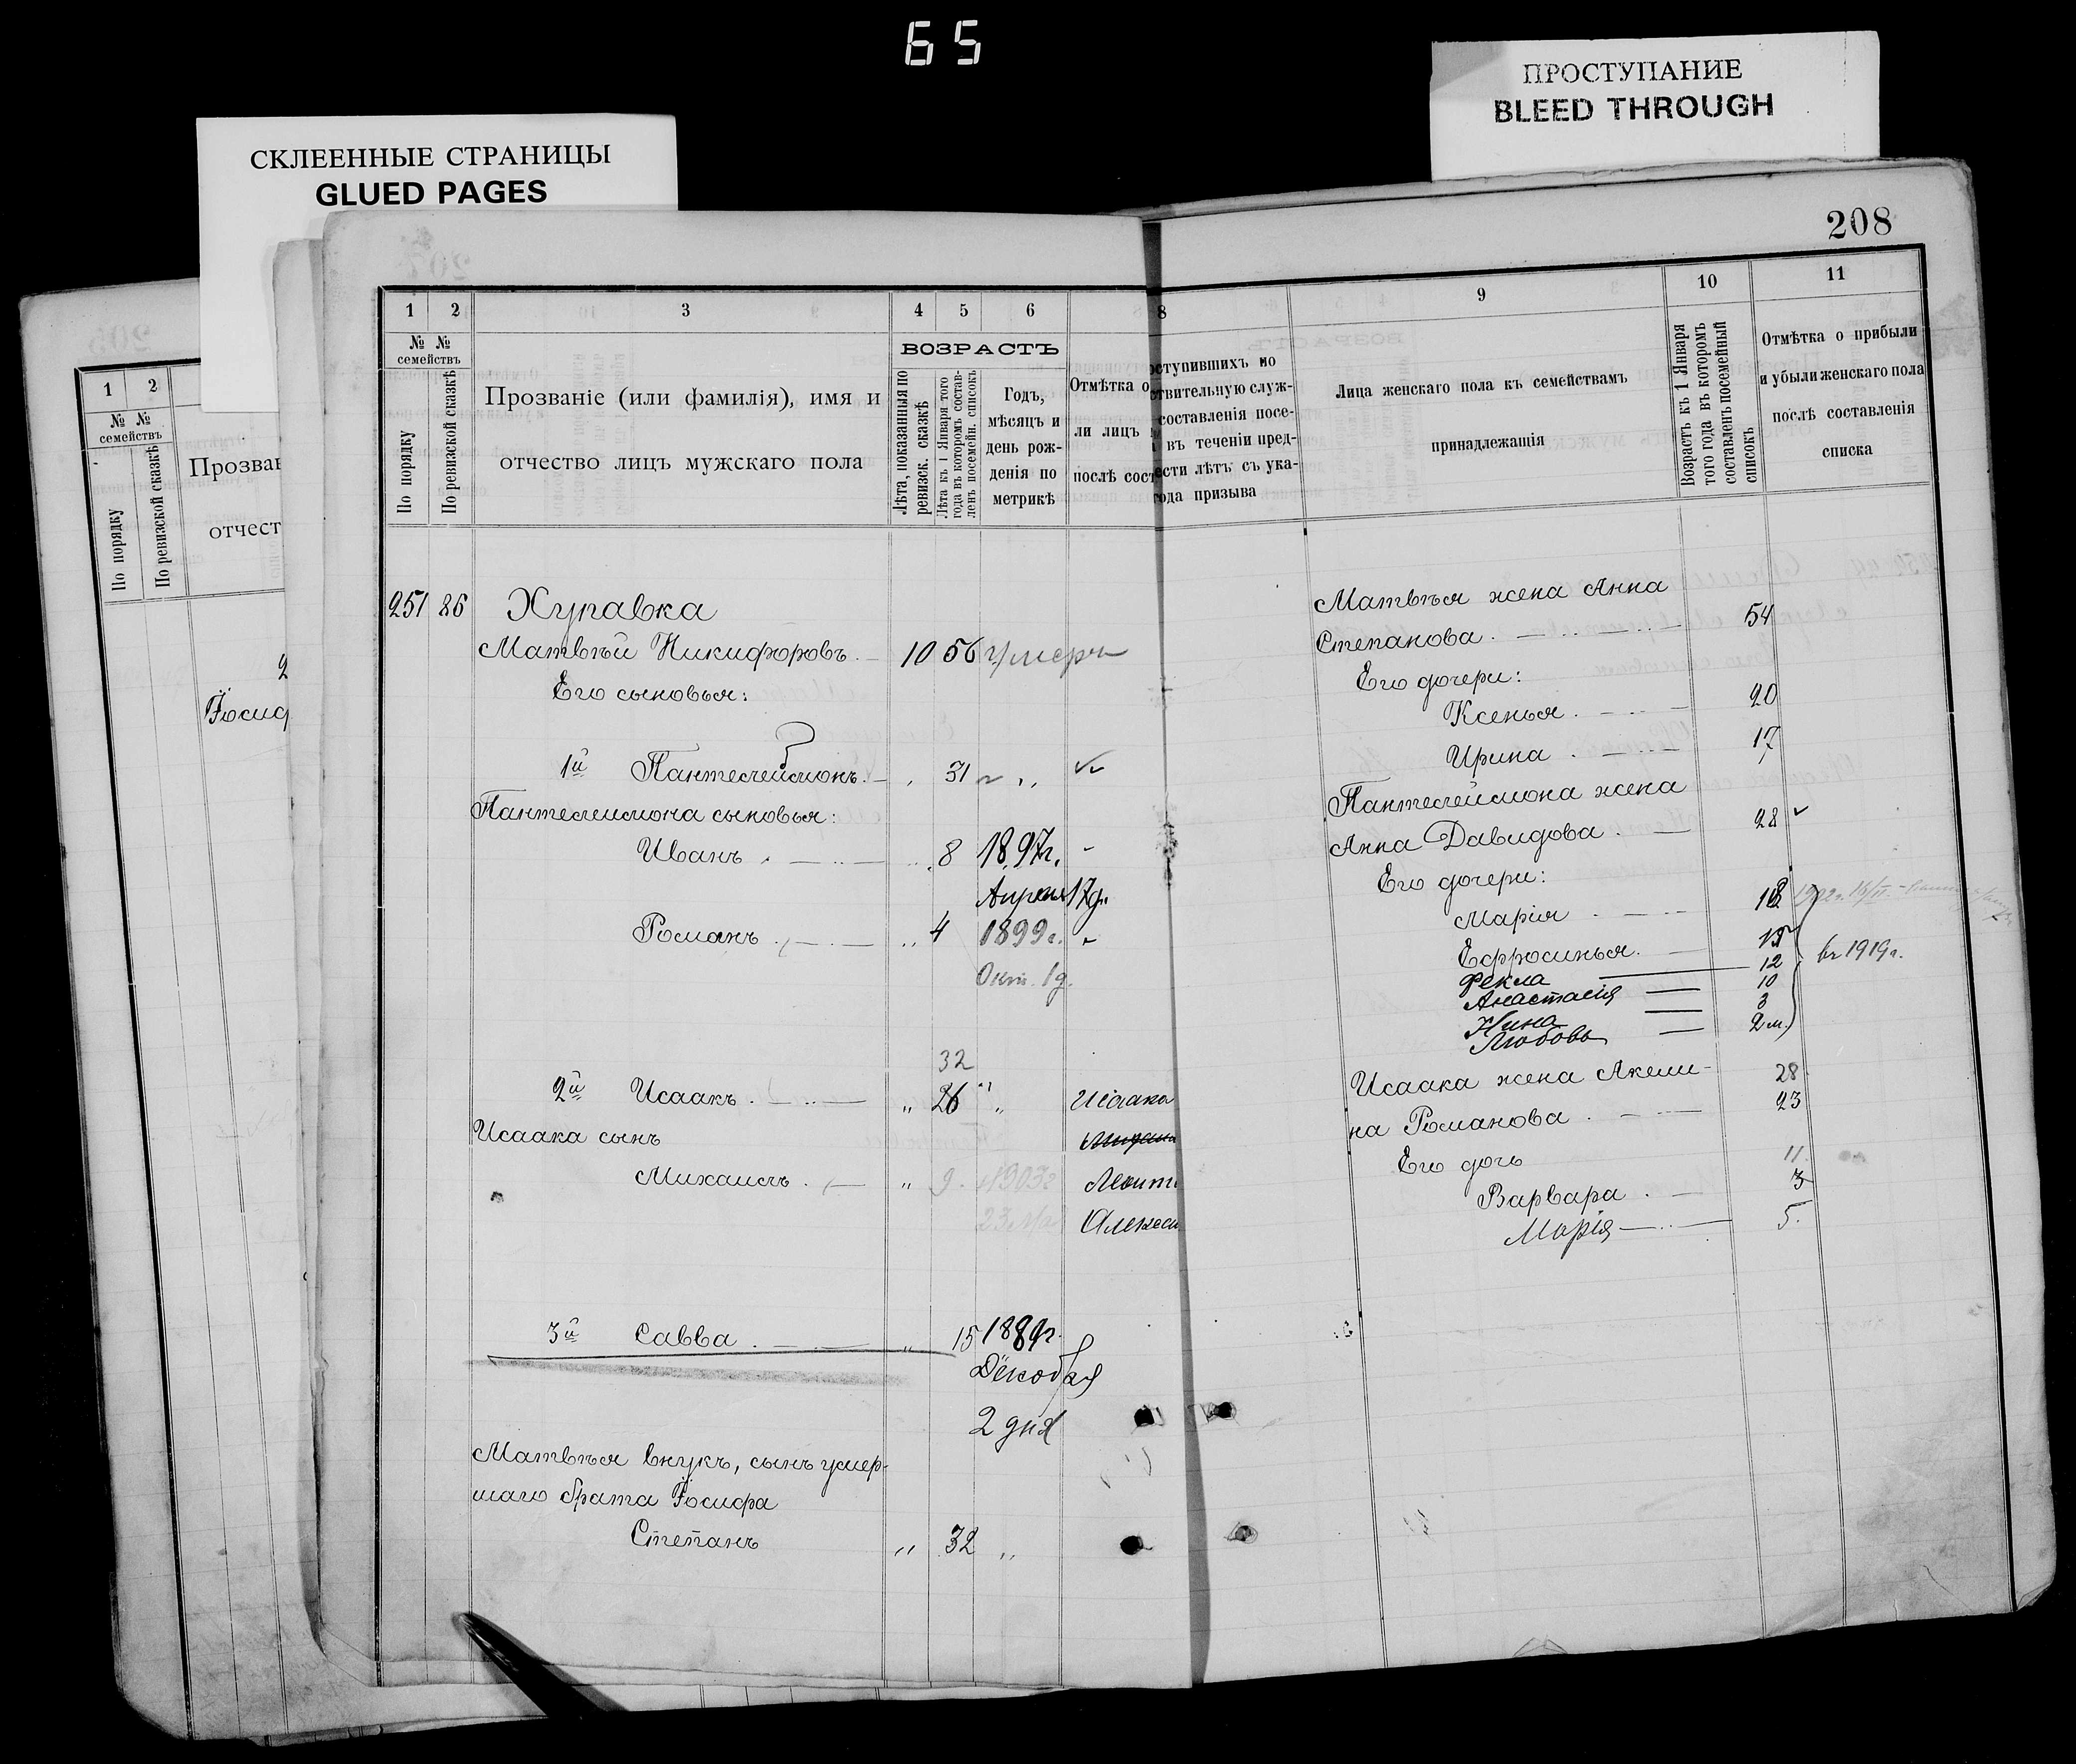 65
ПРОСТУПАНИЕ
BLEED THROUGH
СКЛЕЕННЫЕ СТРАНИЦЫ
GLUED PAGES
208
1 2
№ №
семействъ
По порядку
По ревизской сказкѣ
Прозван
отчест
Іосиф
1 2 3 4 5 6 8 9 10 11
№ №
семействъ
По порядку
По ревизской сказкѣ
Прозваніе (или фамилія), имя и
отчество лицъ мужскаго пола
ВОЗРАСТЪ
Лѣта, показанныя по
ревизск. сказкѣ
Лѣта къ 1 Января того
года въ которомъ состав-
ленъ посемейн. списокъ
Годъ,
мѣсяцъ и
день рож-
денія по
метрикѣ
Отмѣтка о
ли лицъ
послѣ сост
оступившихъ по
ствительную служ-
составленія посе-
въ теченіи пред-
ести лѣтъ съ ука-
года призыва
Лица женскаго пола къ семействамъ
принадлежащія
Возрастъ къ 1 Января
того года въ которомъ
составленъ посемейный
списокъ
Отмѣтка о прибыли
и убыли женскаго пола
послѣ составленія
списка
251 86 Хуравка
Матвѣй Никифоровъ. 10 56 умеръ
Его сыновья:
1й Пантелеймонъ. 31
Пантелеимона сыновья:
Иванъ 8 1897г.
Апреля 17д.
Романъ 4 1899г.
Окт. 1д.
32
2й Исаакъ. 26 Исаака
Исаака сынъ
Михаилъ. 9. 1903г Леонт
Алекса
3й Савва 15 1889г.
Декобря
2 дня
Матвѣя внукъ, сынъ умер-
шаго брата Іосифа
Степанъ 32
Матвѣя жена Анна
Степанова. 54
Его дочери:
Ксенья. 20
Ирина. 17
Пантелеймона жена
Анна Давидова. 28
Его дочери:
Марія 18
Ефросинья. 15
въ 1919г.
Фекла 12
Анастасія 10
Нина 3
Любовь 2 м.
Исаака жена Акели- 28
на Романова. 23
Его дочь 11.
Варвара. 3
Марія 5.